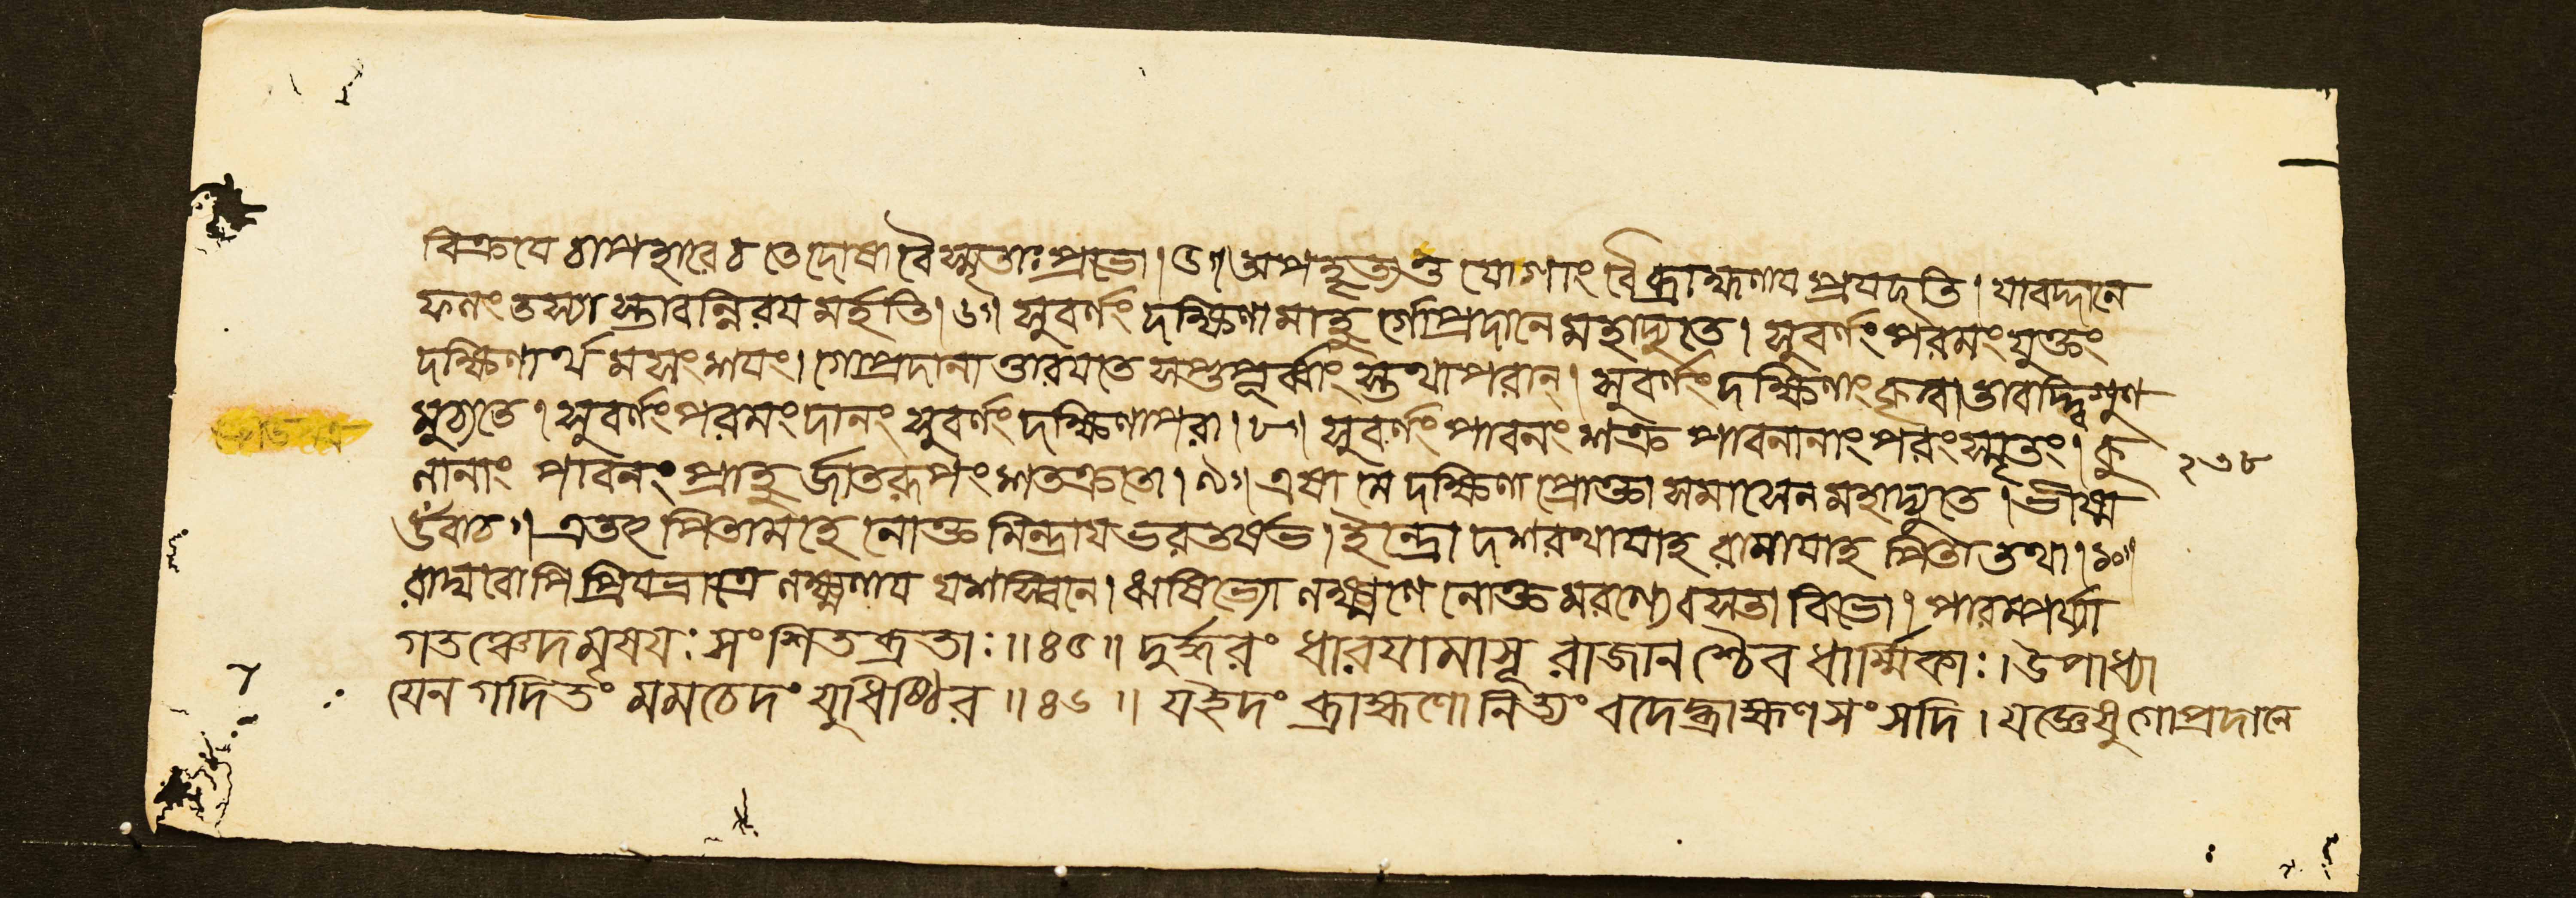 বিক্রযে চাপহারে চ তে দোষা বৈ স্মৃতাঃ প্রভো। ৫॥ অপহৃত্য তু যো গাং বৈ ব্রাহ্মণায প্রযচ্ছতি। যাবদ্দানে
ফলং তস্যা স্তাবন্নিরয মর্হতি। ৬॥ সুবর্ণং দক্ষিণা মাহু র্গোপ্রদানে মহাদ্যুতে। সুবর্ণং পরমং যুক্তং
দক্ষিণার্থ মসংশযং। গোপ্রদানা ত্তারযতে সপ্ত পূর্ব্বাং স্তথাপরান্। সুবর্ণং দক্ষিণাং কৃত্বা তাবদ্দ্বিগুণ
মুচ্যতে। সুবর্ণং পরমং দানং সুবর্ণং দক্ষিণাপরা। ৮॥ সুবর্ণং পাবনং শক্র পাবনানাং পরং স্মৃতং। কু
২৩৮
লানাং পাবনং প্রাহু র্জাতরূপং শতক্রতো। ৯॥ এষা মে দক্ষিণা প্রোক্তা সমাসেন মহাদ্যুতে। ভীষ্ম
উবাচ॥ এতৎ পিতামহে নোক্ত মিন্দ্রায ভরতর্ষভ। ইন্দ্রো দশরথাযাহ রামাযাহ পিতা তথা। ১০॥
রাঘবোপি প্রিযভ্রাত্রে লক্ষ্মণায যশস্বিনে। ঋষিভ্যো লক্ষ্মণে নোক্ত মরণ্যে বসতা বিভো। পারম্পর্য্যা
গতঞ্চেদমৃষযঃ সংশিতব্রতাঃ॥ ৪৫॥ দুর্দ্ধরং ধারযামাসূ রাজান শ্চৈব ধার্ম্মিকাঃ। উপাধ্যা
যেন গদিতং মম চেদং যুধিষ্ঠির॥ ৪৬॥ য ইদং ব্রাহ্মণো নিত্যং বদেদ্ব্রাহ্মণ সংসদি। যজ্ঞেষু গোপ্রদানে